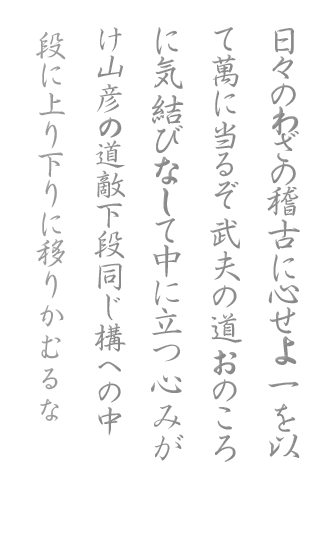 日々のわざの稽古に心せよ一を以
て萬に当るぞ武夫の道おのころ
に気結びなして中に立つ心みが
け山彦の道敵下段同じ構への中
段に上り下りに移りかむるな